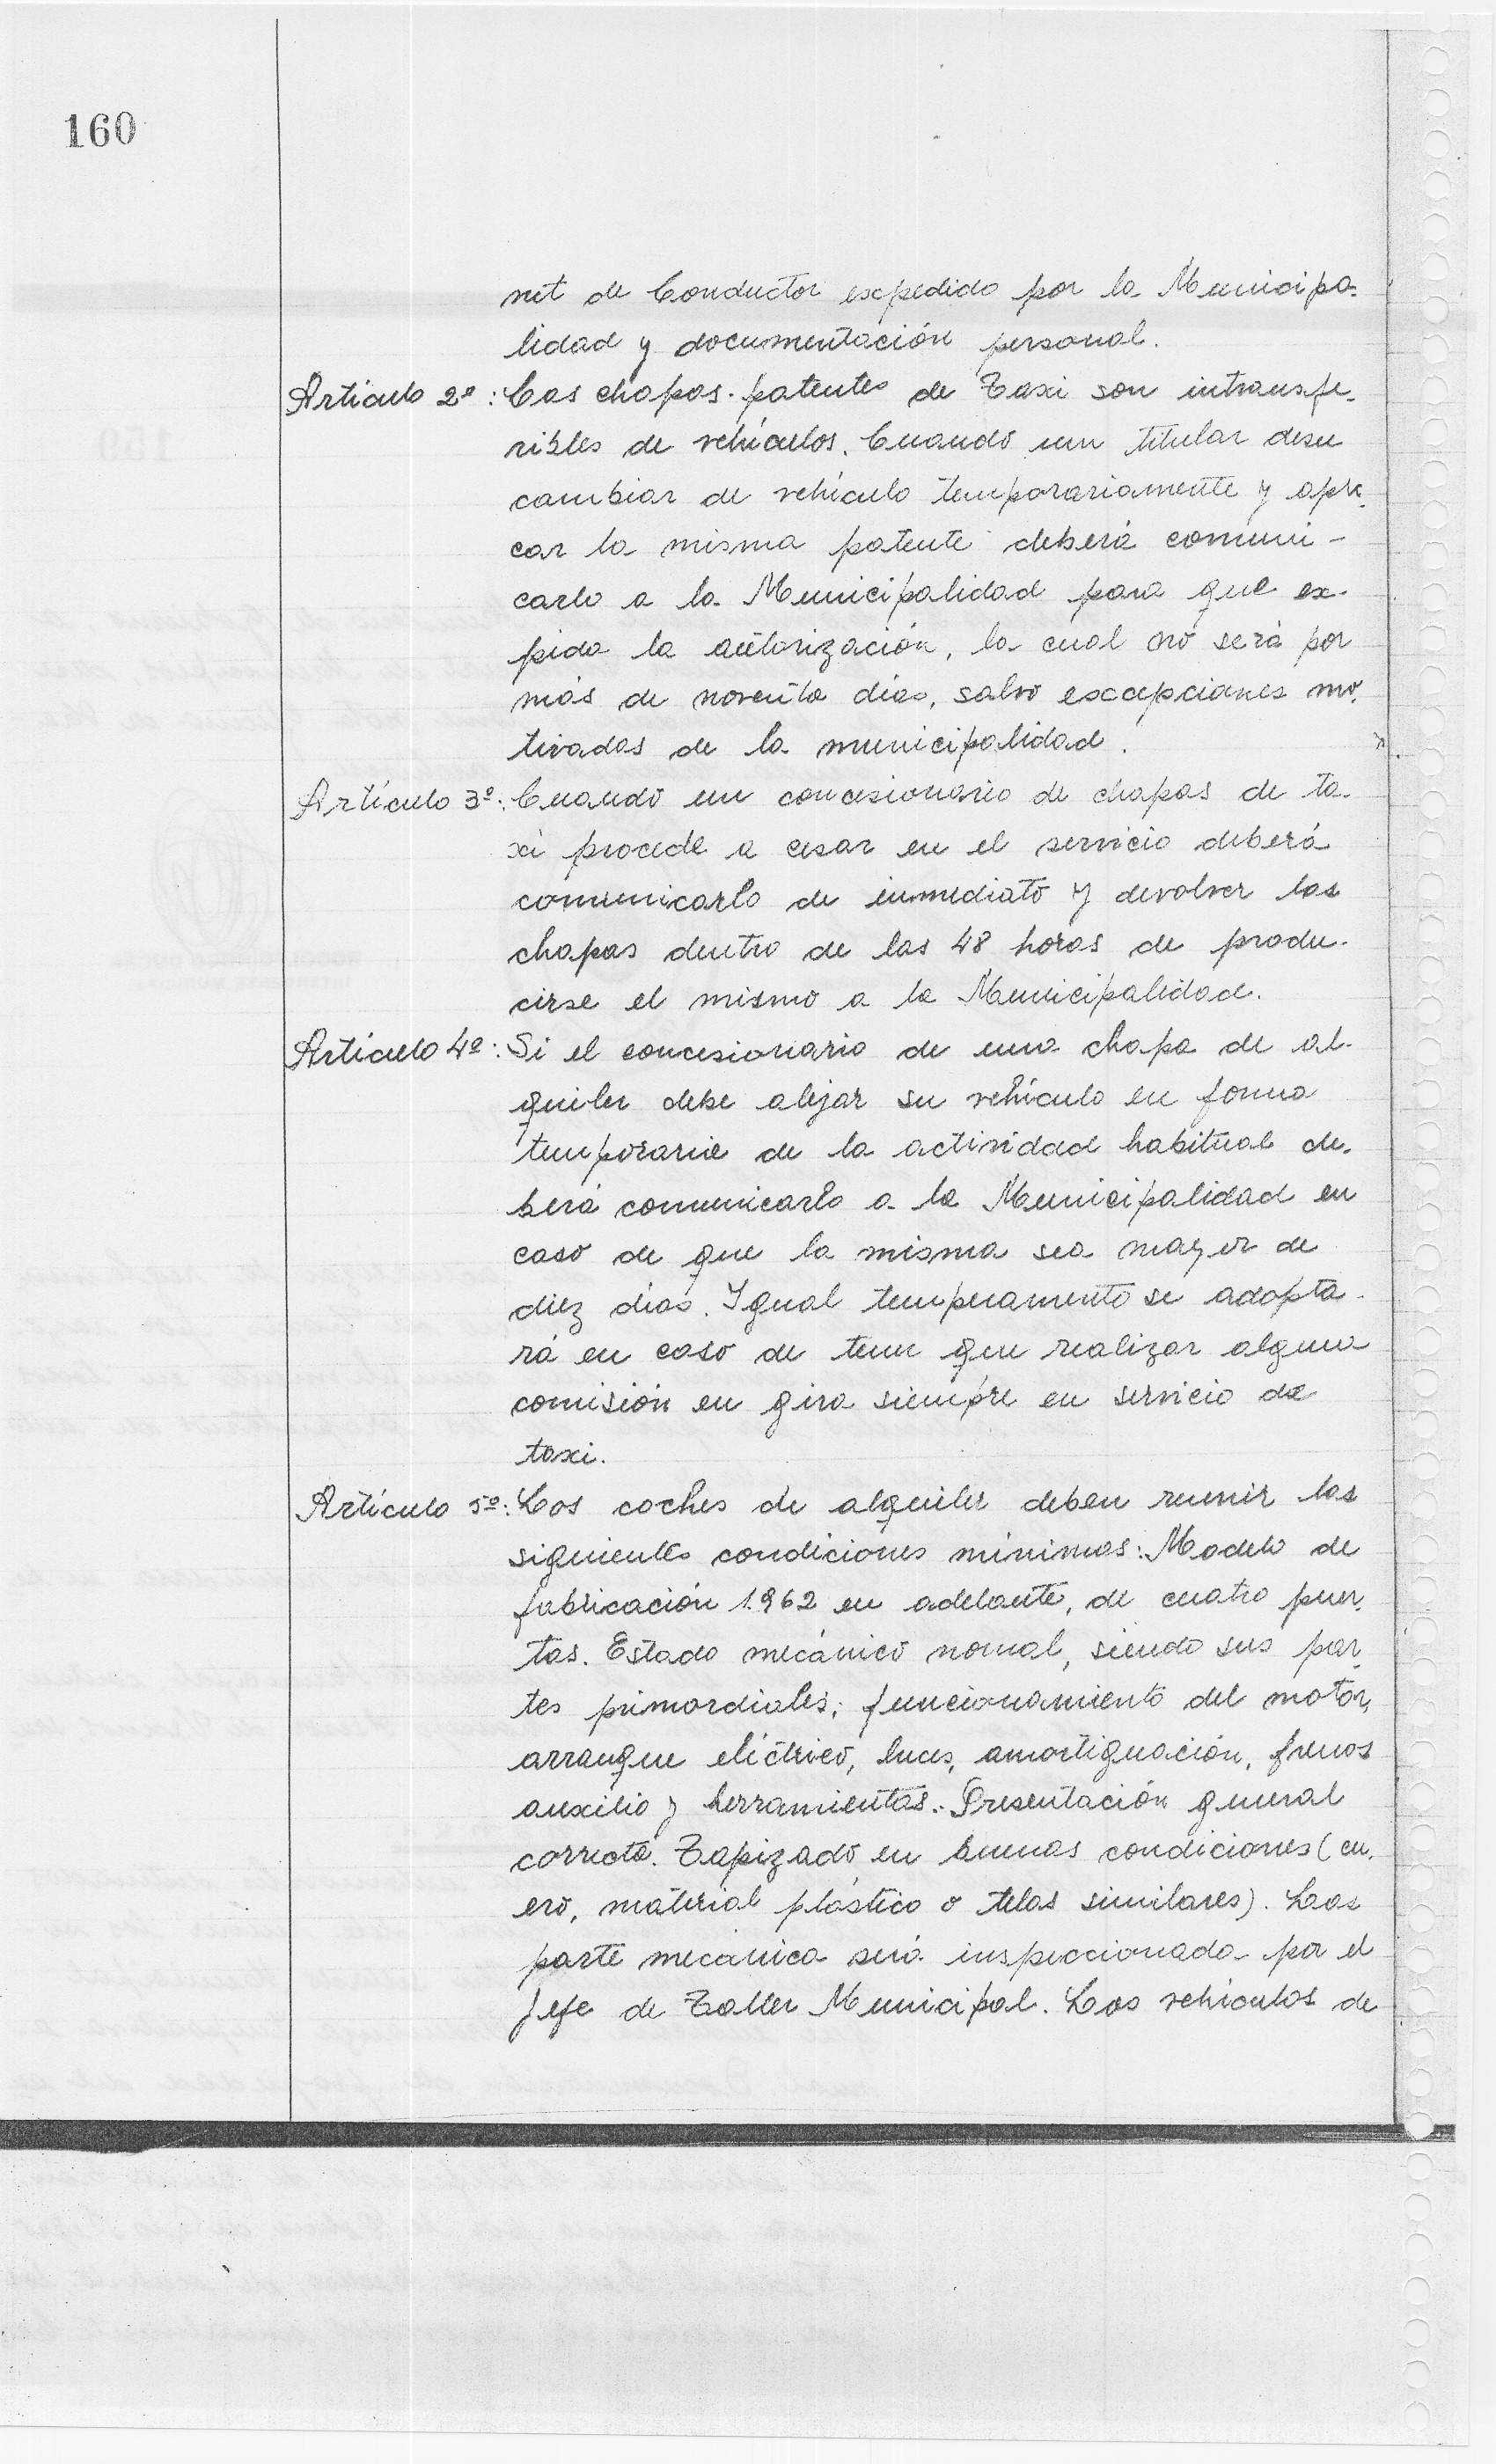 160
net de Conductor expedido por la Municipa-
lidad y documentación personal.
Artículo 2º: Las chapas-patentes de Taxi son intransfe-
ribles de vehículos. Cuando un titular desee
cambiar de vehículo temporariamente y apli-
car la misma patente deberá comuni-
carlo a la Municipalidad para que ex-
pida la autorización, la cual no será por
más de noventa días, salvo excepciones mo-
tivadas de la municipalidad.
Artículo 3º: Cuando un concesionario de chapas de ta-
xi procede a cesar en el servicio deberá
comunicarlo de inmediato y devolver las
chapas dentro de las 48 horas de produ-
cirse el mismo a la Municipalidad.
Artículo 4º: Si el concesionario de una chapa de al-
quiler debe alejar su vehículo en forma
temporaria de la actividad habitual de-
berá comunicarlo a la Municipalidad en
caso de que la misma sea mayor de
diez días. Igual temperamento se adopta-
rá en caso de tener que realizar alguna
comisión en gira siempre en servicio de
taxi.
Artículo 5º: Los coches de alquiler deben reunir las
siguientes condiciones mínimas: Modelo de
fabricación 1.962 en adelante, de cuatro puer-
tas. Estado mecánico normal, siendo sus par-
tes primordiales; funcionamiento del motor,
arranque eléctrico, luces, amortiguación, frenos
auxilio y herramientas. Presentación general
correcta. Tapizado en buenas condiciones (cu-
ero, material plástico o telas similares). Las
parte mecánica será inspeccionada por el
Jefe de Taller Municipal. Los vehículos de